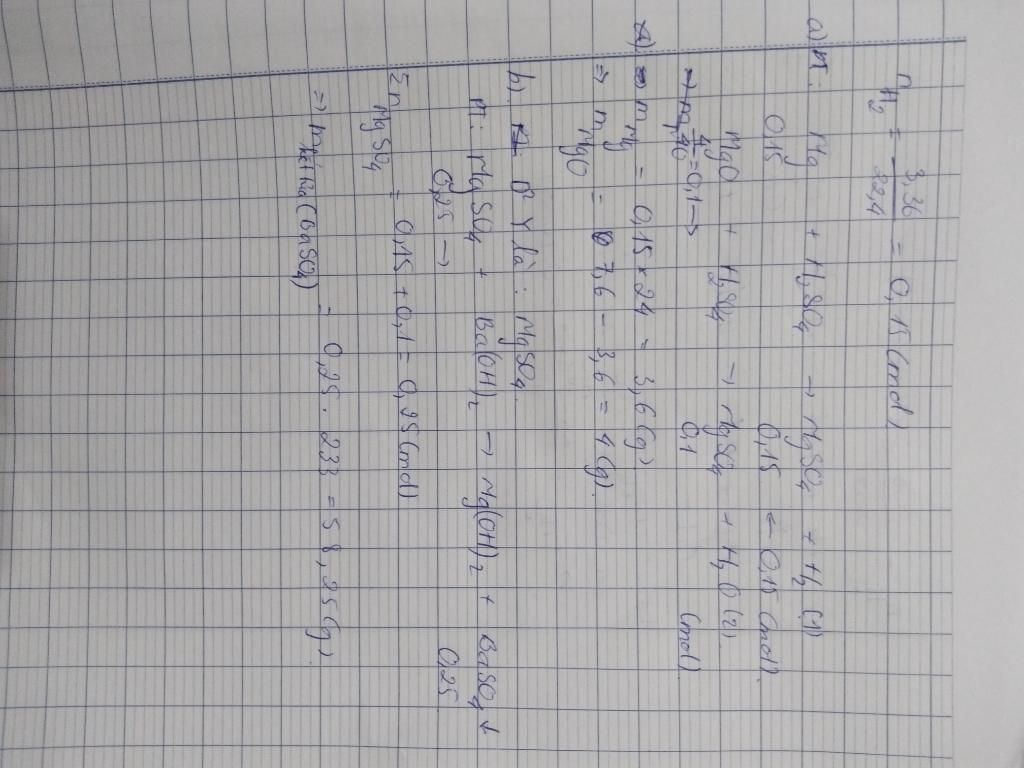 nH₂ = 3,36/22,4 = 0,15 (mol)
a) Pt: Mg + H₂SO₄ → MgSO₄ + H₂ (1)
0,15 0,15 ← 0,15 (mol).
MgO + H₂SO₄ → MgSO₄ + H₂O (2)
4/40 = 0,1 → 0,1 (mol).
a) mMg = 0,15 × 24 = 3,6 (g)
⇒ mMgO = 7,6 - 3,6 = 4 (g).
b). Y là : MgSO₄.
Pt: MgSO₄ + Ba(OH)₂ → Mg(OH)₂ + BaSO₄ ↓
0,25 → 0,25
Σn MgSO₄ = 0,15 + 0,1 = 0,25 (mol)
⇒ m (BaSO₄) = 0,25 . 233 = 58,25 (g).